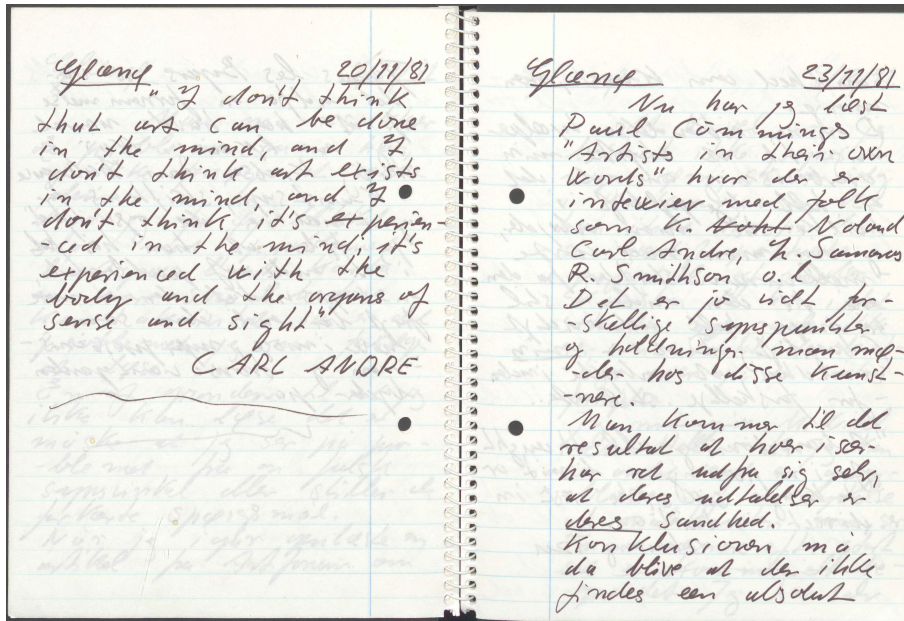 Gland 20/11/81
"I don't think
that art can be done
in the mind, and I
don't think art exists
in the mind, and I
don't think it's experien-
-ced in the mind; it's
experienced with the
body and the organs of
sense and sight"
CARL ANDRE
Gland 23/11/81
Nu har jeg læst
Paul Cummings
"Artists in their own
words" hvor der er
interviewer med folk
som K. Noland
Carl Andre, L. Samaras
R. Smithson o.l
Det er jo vidt for-
-skellige synspunkter
og holdninger man mø-
-der hos disse kunst-
-nere.
Man kommer til det
resultat at hver især
har ret udfra sig selv,
at deres udtalelser er
deres sandhed.
Konklusionen må
da blive at der ikke
findes een absolut